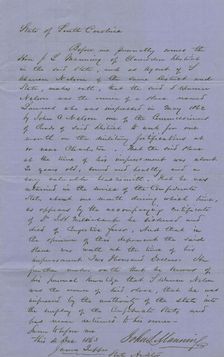 State of South Carolina
Before me personally comes the
Hon. J. L. Manning, of Clarendon District
in the said State, and as Agent of S
Warren Nelson of the same District and
State, makes oath, that the said S Warren
Nelson was the owner of a slave named
and was impressed in May 1862
by John O Nelson one of the Commissioners
of Roads of said District to work for one
month on the military fortifications at
or near Charleston. That the said slave
at the time of his impressment was about
years old, sound and healthy and a
That he was
retained in the service of the Confederate
State about one month during which time,
as appears by the accompanying certificate
of Dr
died of fever. And that in
the opinion of this deponent the said
slave was worth at the time of his
impressment Two Thousand Dollars. He
further makes oath that he knows of
his personal knowledge that S Warren Nelson
was the owner of said slave, that he was
impressed by the authority of the State into
the employ of the Confederate States and
had never returned to his owner
Sworn to before me
this 4 Dec 1863
John L Manning
James Tupper
State Auditor